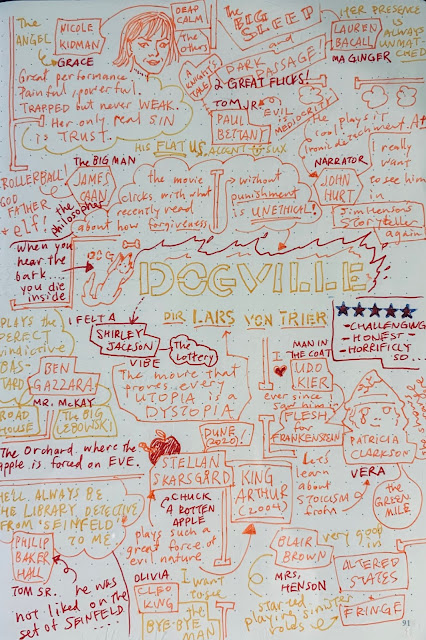 The ANGEL
NICOLE KIDMAN
GRACE
Great performance.
Painful, powerful.
TRAPPED but never WEAK.
Her only real SIN
is TRUST.
DEAD CALM
The Others
The BIG SLEEP
and
DARK PASSAGE!
2 GREAT FLICKS!
HER PRESENCE
is ALWAYS
UNMATCHED
LAUREN BACALL
MA GINGER
TOM JR.
EVIL MEDIOCRITY
PAUL BETTANY
he plays it
cool
Ironic detachment. A+
HIS FLAT US ACCENT
SUX
ROLLERBALL
GOD FATHER
+ elf!
The BIG MAN
JAMES CAAN
the philosopher
the movie
clicks with what
I recently read
about how forgiveness
without
punishment
is UNETHICAL!
NARRATOR
JOHN HURT
I really
want
to see him
in
Jim Hensons
Storyteller
again
when you
hear the
bark....
you die
inside
DOG
DOGVILLE
DIR LARS VON TRIER
- CHALLENGING
- HONEST -
- HORRIFICLY
SO...
I FELT A
SHIRLEY JACKSON
VIBE
The Lottery
The movie that
proves... every
UTOPIA is a
DYSTOPIA
PLAYS the
PERFECT
vindictive
BASTARD
BEN GAZZARA
MR. MCKAY
ROAD HOUSE
The BIG LEBOWSKI
MAN IN THE COAT
I
UDO KIER
ever since I
saw him in
FLESH
for
FRANKENSTEIN
PATRICIA CLARKSON
VERA
Let's
learn
about
STOICISM
from
the GREEN MILE
The Orchard. where the
apple is forced on EVE.
DUNE (2020)!
STELLAN SKARSGÅRD
CHUCK
A ROTTEN
APPLE
KING ARTHUR (2004)
plays such a
great force of
evil nature
HE'LL ALWAYS BE
THE LIBRARY DETECTIVE
FROM 'SEINFELD'
TO ME.
PHILIP BAKER HALL
TOM SR.
he was
not liked on the
set of SEINFELD...
OLIVIA
CLEO KING
I want
to see
the
BYE-BYE
MAN
BLAIR BROWN
MRS. HENSON
Very good
in
ALTERED STATES
started
playing sinister
roles
FRINGE
91